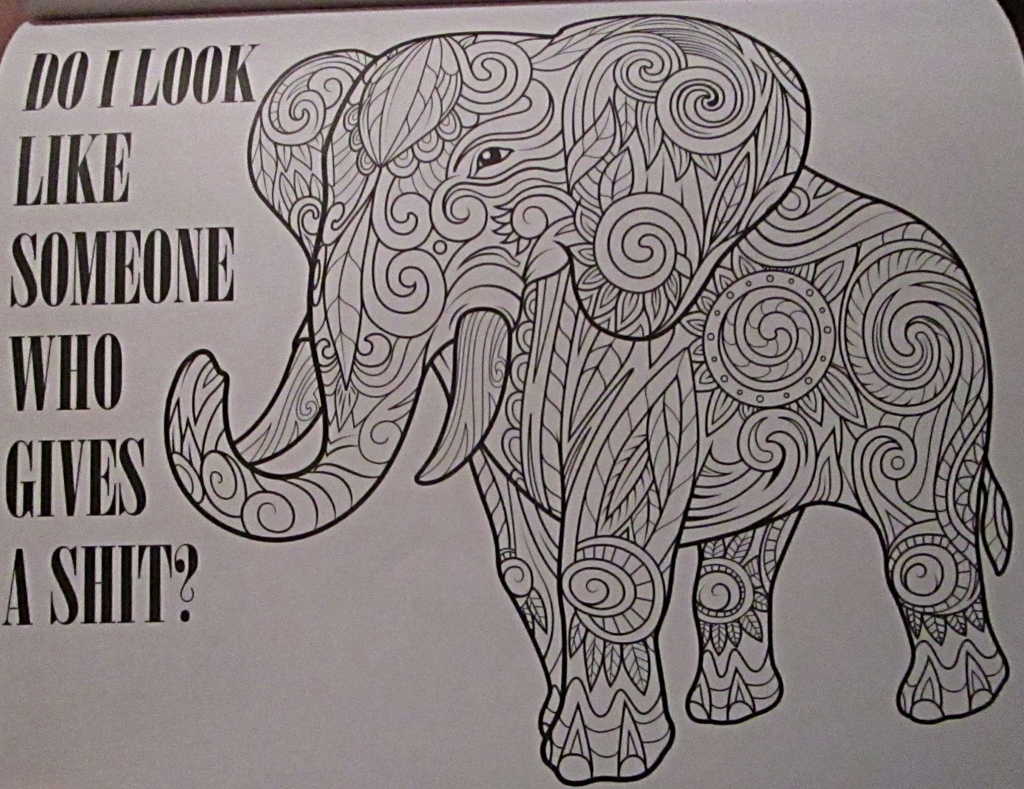 DO I LOOK
LIKE
SOMEONE
WHO
GIVES
A SHIT?